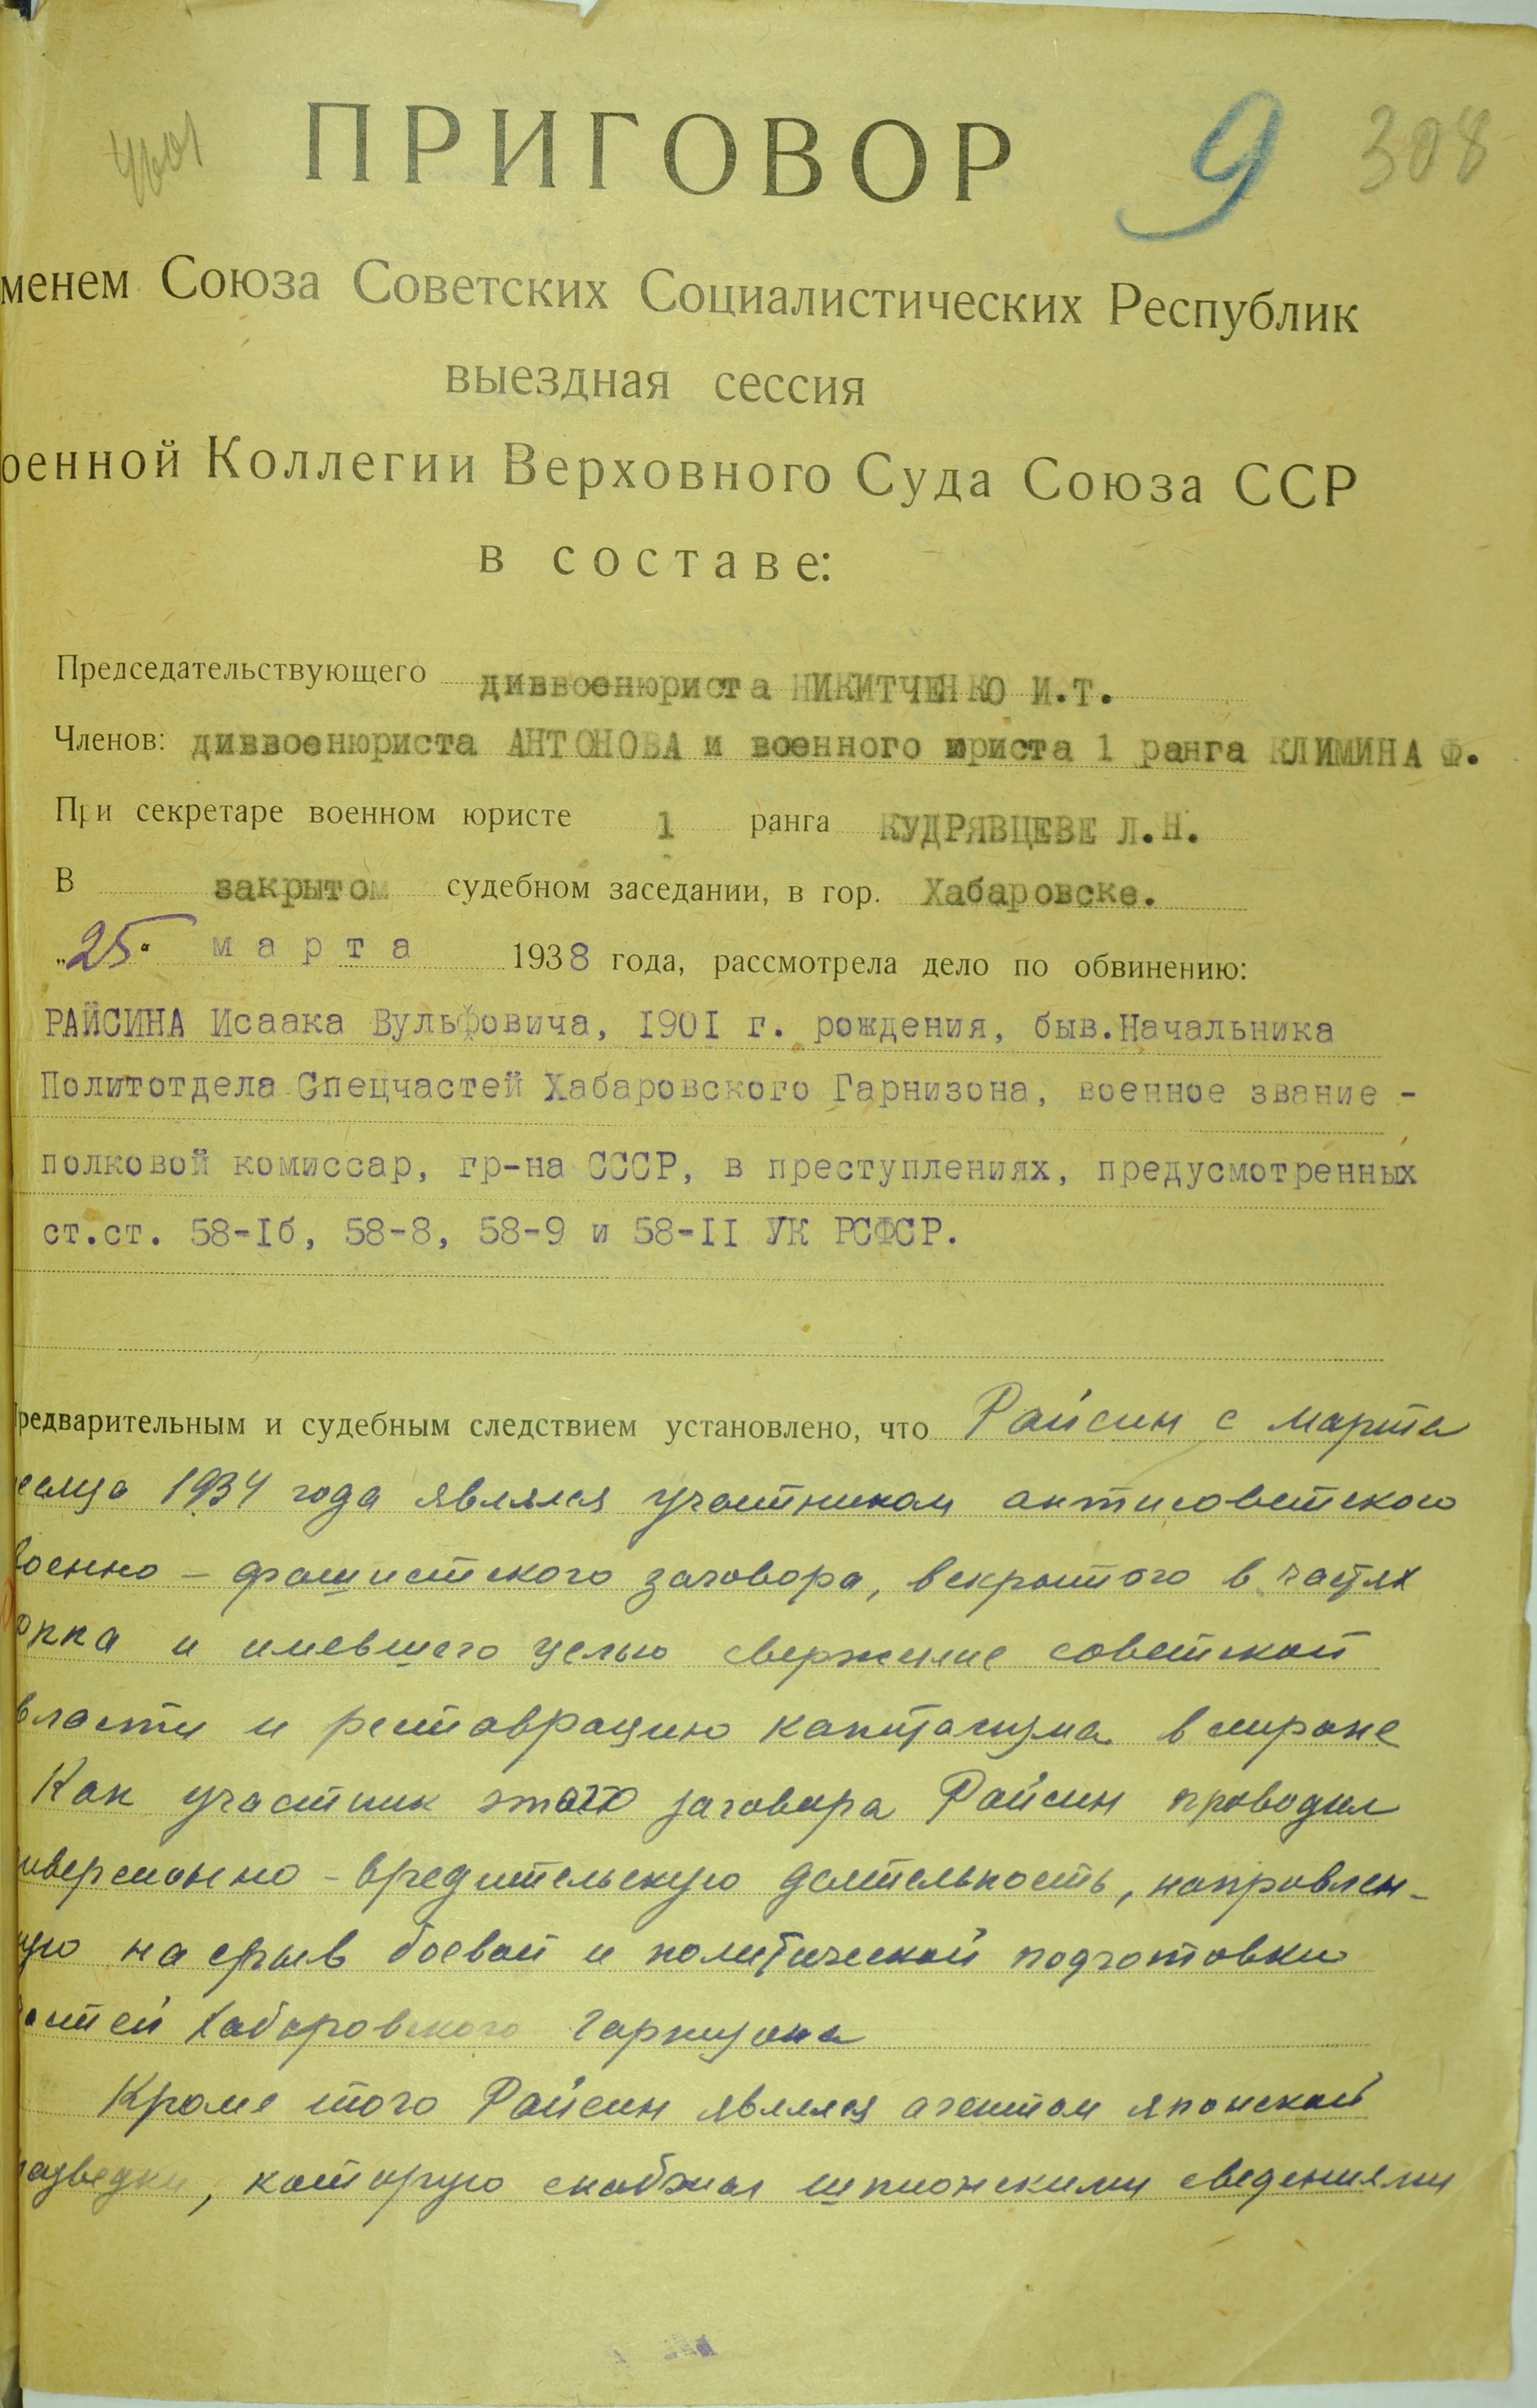 4601
ПРИГОВОР
9
308
менем Союза Советских Социалистических Республик
выездная сессия
оенной Коллегии Верховного Суда Союза ССР
в составе:
Председательствующего диввоенюриста НИКИТЧЕНКО И.Т.
Членов: диввоенюриста АНТОНОВА и военного юриста 1 ранга КЛИМИНА Ф.
При секретаре военном юристе 1 ранга КУДРЯВЦЕВЕ Л.Н.
В закрытом судебном заседании, в гор. Хабаровске.
„25" марта 1938 года, рассмотрела дело по обвинению:
РАЙСИНА Исаака Вульфовича, 1901 г. рождения, быв.Начальника
Политотдела Спецчастей Хабаровского Гарнизона, военное звание -
полковой комиссар, гр-на СССР, в преступлениях, предусмотренных
ст.ст. 58-Iб, 58-8, 58-9 и 58-II УК РСФСР.
редварительным и судебным следствием установлено, что Райсин с марта
есяца 1934 года являлся участником антисоветского
военно - фашистского заговора, вскрытого в частях
ркка и имевшего целью свержение советской
власти и реставрацию капитализма в стране
Как участник этого заговора Райсин проводил
иверсионно - вредительскую деятельность, направлен-
ную на срыв боевой и политической подготовки
частей Хабаровского Гарнизона
Кроме того Райсин являлся агентом японской
разведки, которую снабжал шпионскими сведениями